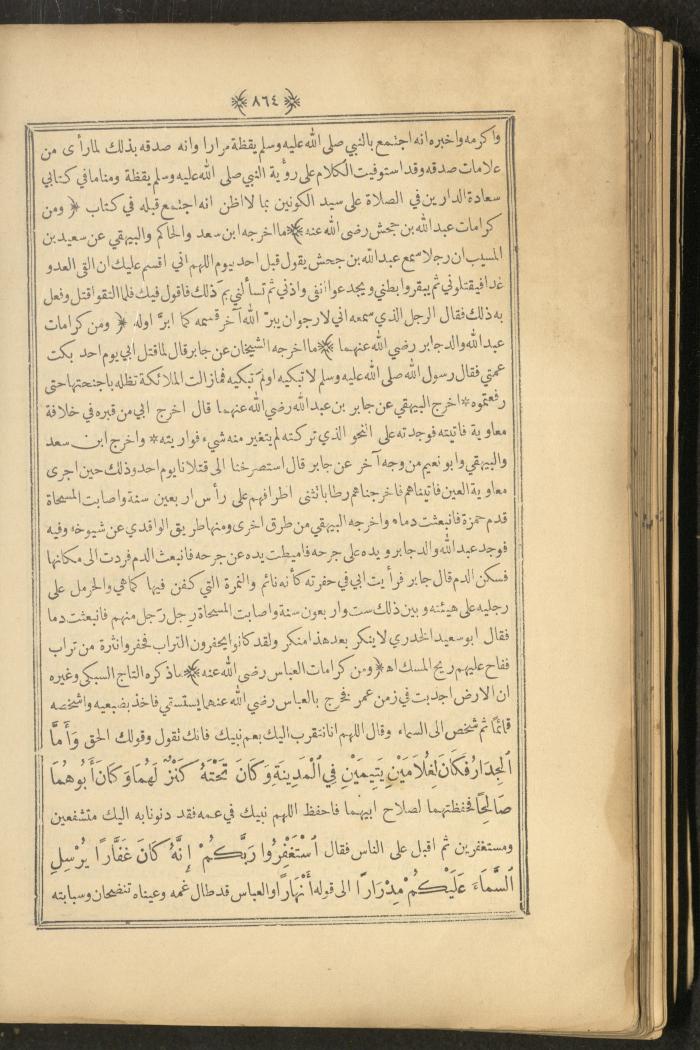 ﴿ ٨٦٤ ﴾
واكرمه واخبره انه اجتمع بالنبي صلى الله عليه وسلم يقظة مرارا وانه صدقه بذلك لما رأى من
علامات صدقه وقد استوفيت الكلام على رؤية النبي صلى الله عليه وسلم يقظة ومناما في كتابي
سعادة الدارين في الصلاة على سيد الكونين بما لا اظن انه اجتمع قبله في كتاب ﴿ ومن
كرامات عبد الله بن جحش رضى الله عنه ﴾ ما اخرجه ابن سعد والحاكم والبيهقي عن سعيد بن
المسيب ان رجلا سمع عبد الله بن جحش يقول قبل احد بيوم اللهم اني اقسم عليك ان القى العدو
غدا فيقتلوني ثم يبقروا بطني ويجدعوا انفى واذني ثم تسألني بم ذلك فاقول فيك فلما التقوا قتل وفعل
به ذلك فقال الرجل الذي سمعه اني لارجو ان يبرّ الله آخر قسمه كما ابرّ اوله ﴿ ومن كرامات
عبد الله والد جابر رضي الله عنهما ﴾ ما اخرجه الشيخان عن جابر قال لما قتل ابي يوم احد بكت
عمتي فقال رسول الله صلى الله عليه وسلم لا تبكيه او لم تبكيه فما زالت الملائكة تظله باجنحتها حتى
رفعتموه * اخرج البيهقي عن جابر بن عبد الله رضي الله عنهما قال اخرج ابي من قبره في خلافة
معاوية فاتيته فوجدته على النحو الذي تركته لم يتغير منه شيء فواريته * واخرج ابن سعد
والبيهقي وابو نعيم من وجه آخر عن جابر قال استصرخنا الى قتلانا يوم احد وذلك حين اجرى
معاوية العين فاتيناهم فاخرجناهم رطابا تثنى اطرافهم على رأس اربعين سنة واصابت المسحاة
قدم حمزة فانبعثت دما * واخرجه البيهقي من طرق اخرى ومنها طريق الواقدي عن شيوخه وفيه
فوجد عبد الله والد جابر ويده على جرحه فاميطت يده عن جرحه فانبعث الدم فردت الى مكانها
فسكن الدم قال جابر فرأيت ابي في حفرته كأنه نائم والنمرة التي كفن فيها كما هي والحرمل على
رجليه على هيئته وبين ذلك ست واربعون سنة واصابت المسحاة رجل رجل منهم فانبعثت دما
فقال ابو سعيد الخدري لا ينكر بعد هذا منكر ولقد كانوا يحفرون التراب فحفروا نثرة من تراب
ففاح عليهم ريح المسك اه ﴿ ومن كرامات العباس رضي الله عنه ﴾ ما ذكره التاج السبكي وغيره
ان الارض اجدبت في زمن عمر فخرج بالعباس رضي الله عنهما يستسقي فاخذ بضبعيه واشخصه
قائمًا ثم شخص الى السماء وقال اللهم انا نتقرب اليك بعم نبيك فانك تقول وقولك الحق وَأَمَّا
الْجِدَارُ فَكَانَ لِغُلَامَيْنِ يَتِيمَيْنِ فِي الْمَدِينَةِ وَكَانَ تَحْتَهُ كَنْزٌ لَهُمَا وَكَانَ أَبُوهُمَا
صَالِحًا فحفظتهما لصلاح ابيهما فاحفظ اللهم نبيك في عمه فقد دنونا به اليك متشفعين
ومستغفرين ثم اقبل على الناس فقال اسْتَغْفِرُوا رَبَّكُمْ إِنَّهُ كَانَ غَفَّارًا يُرْسِلِ
السَّمَاءَ عَلَيْكُمْ مِدْرَارًا الى قوله أَنْهَارًا والعباس قد طال غمه وعيناه تنضحان وسبابته